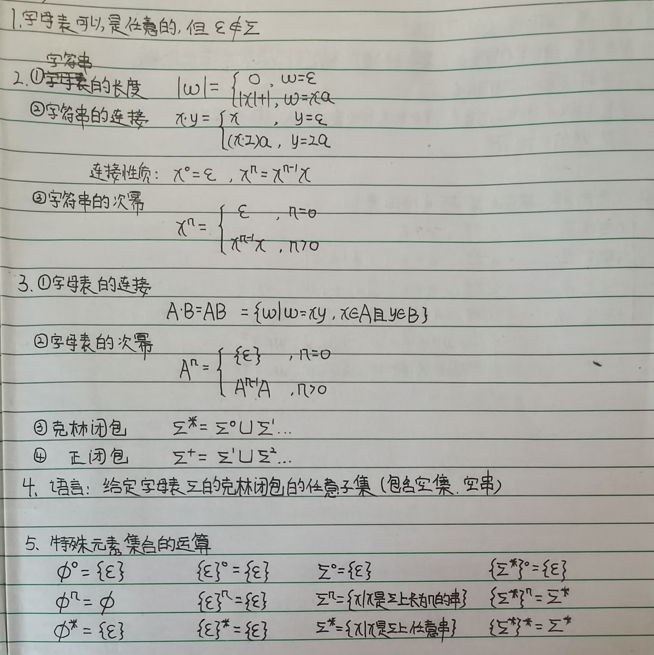 1.字母表可以是任意的,但 ε∉Σ
字符串
2.①字母表的长度 |ω|= { 0 , ω=ε
|x|+1, ω=xa
②字符串的连接 x·y= { x , y=ε
(x·z)a , y=za
连接性质: x⁰=ε , xⁿ=xⁿ⁻¹x
③字符串的次幂
xⁿ= { ε , n=0
xⁿ⁻¹x , n>0
3.①字母表的连接
A·B=AB ={ω|ω=xy, x∈A且y∈B}
②字母表的次幂
Aⁿ= { {ε} , n=0
Aⁿ⁻¹A , n>0
③克林闭包 Σ*=Σ⁰∪Σ¹...
④ 正闭包 Σ⁺=Σ¹∪Σ²...
4、语言: 给定字母表Σ的克林闭包的任意子集(包含空集、空串)
5、特殊元素集合的运算
Φ⁰={ε} {ε}⁰={ε} Σ⁰={ε} {Σ*}⁰={ε}
Φⁿ=Φ {ε}ⁿ={ε} Σⁿ={x|x是Σ上长为n的串} {Σ*}ⁿ=Σ*
Φ*={ε} {ε}*={ε} Σ*={x|x是Σ上任意串} {Σ*}*=Σ*